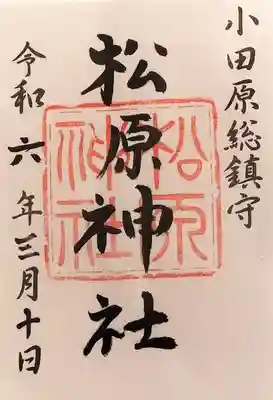 小田原総鎮守
松原神社
松原神社
令和六年三月十日